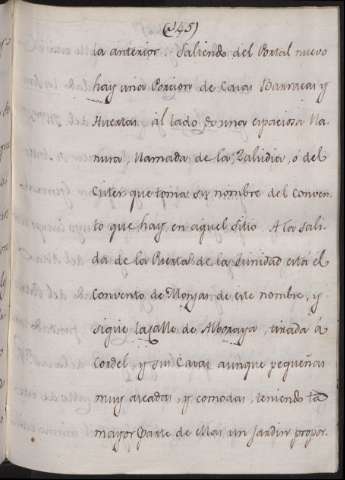 (345)
la anterior. Saliendo del Portal nuevo
hay una Porcion de Casas Barracas y
Huertas al lado de una espaciosa lla-
nura, llamada de la Zaidia, ó del
Cister que toma su nombre del Conven-
to que hay en aquel sitio A la Sali-
da de la Puerta de la trinidad está el
Convento de Monjas de este nombre, y
sigue la calle de Alboraya, tirada á
Cordel, y sus Casas aunque pequeñas
muy aseadas, y comodas, teniendo la
mayor Parte de ellas un Jardin propor-